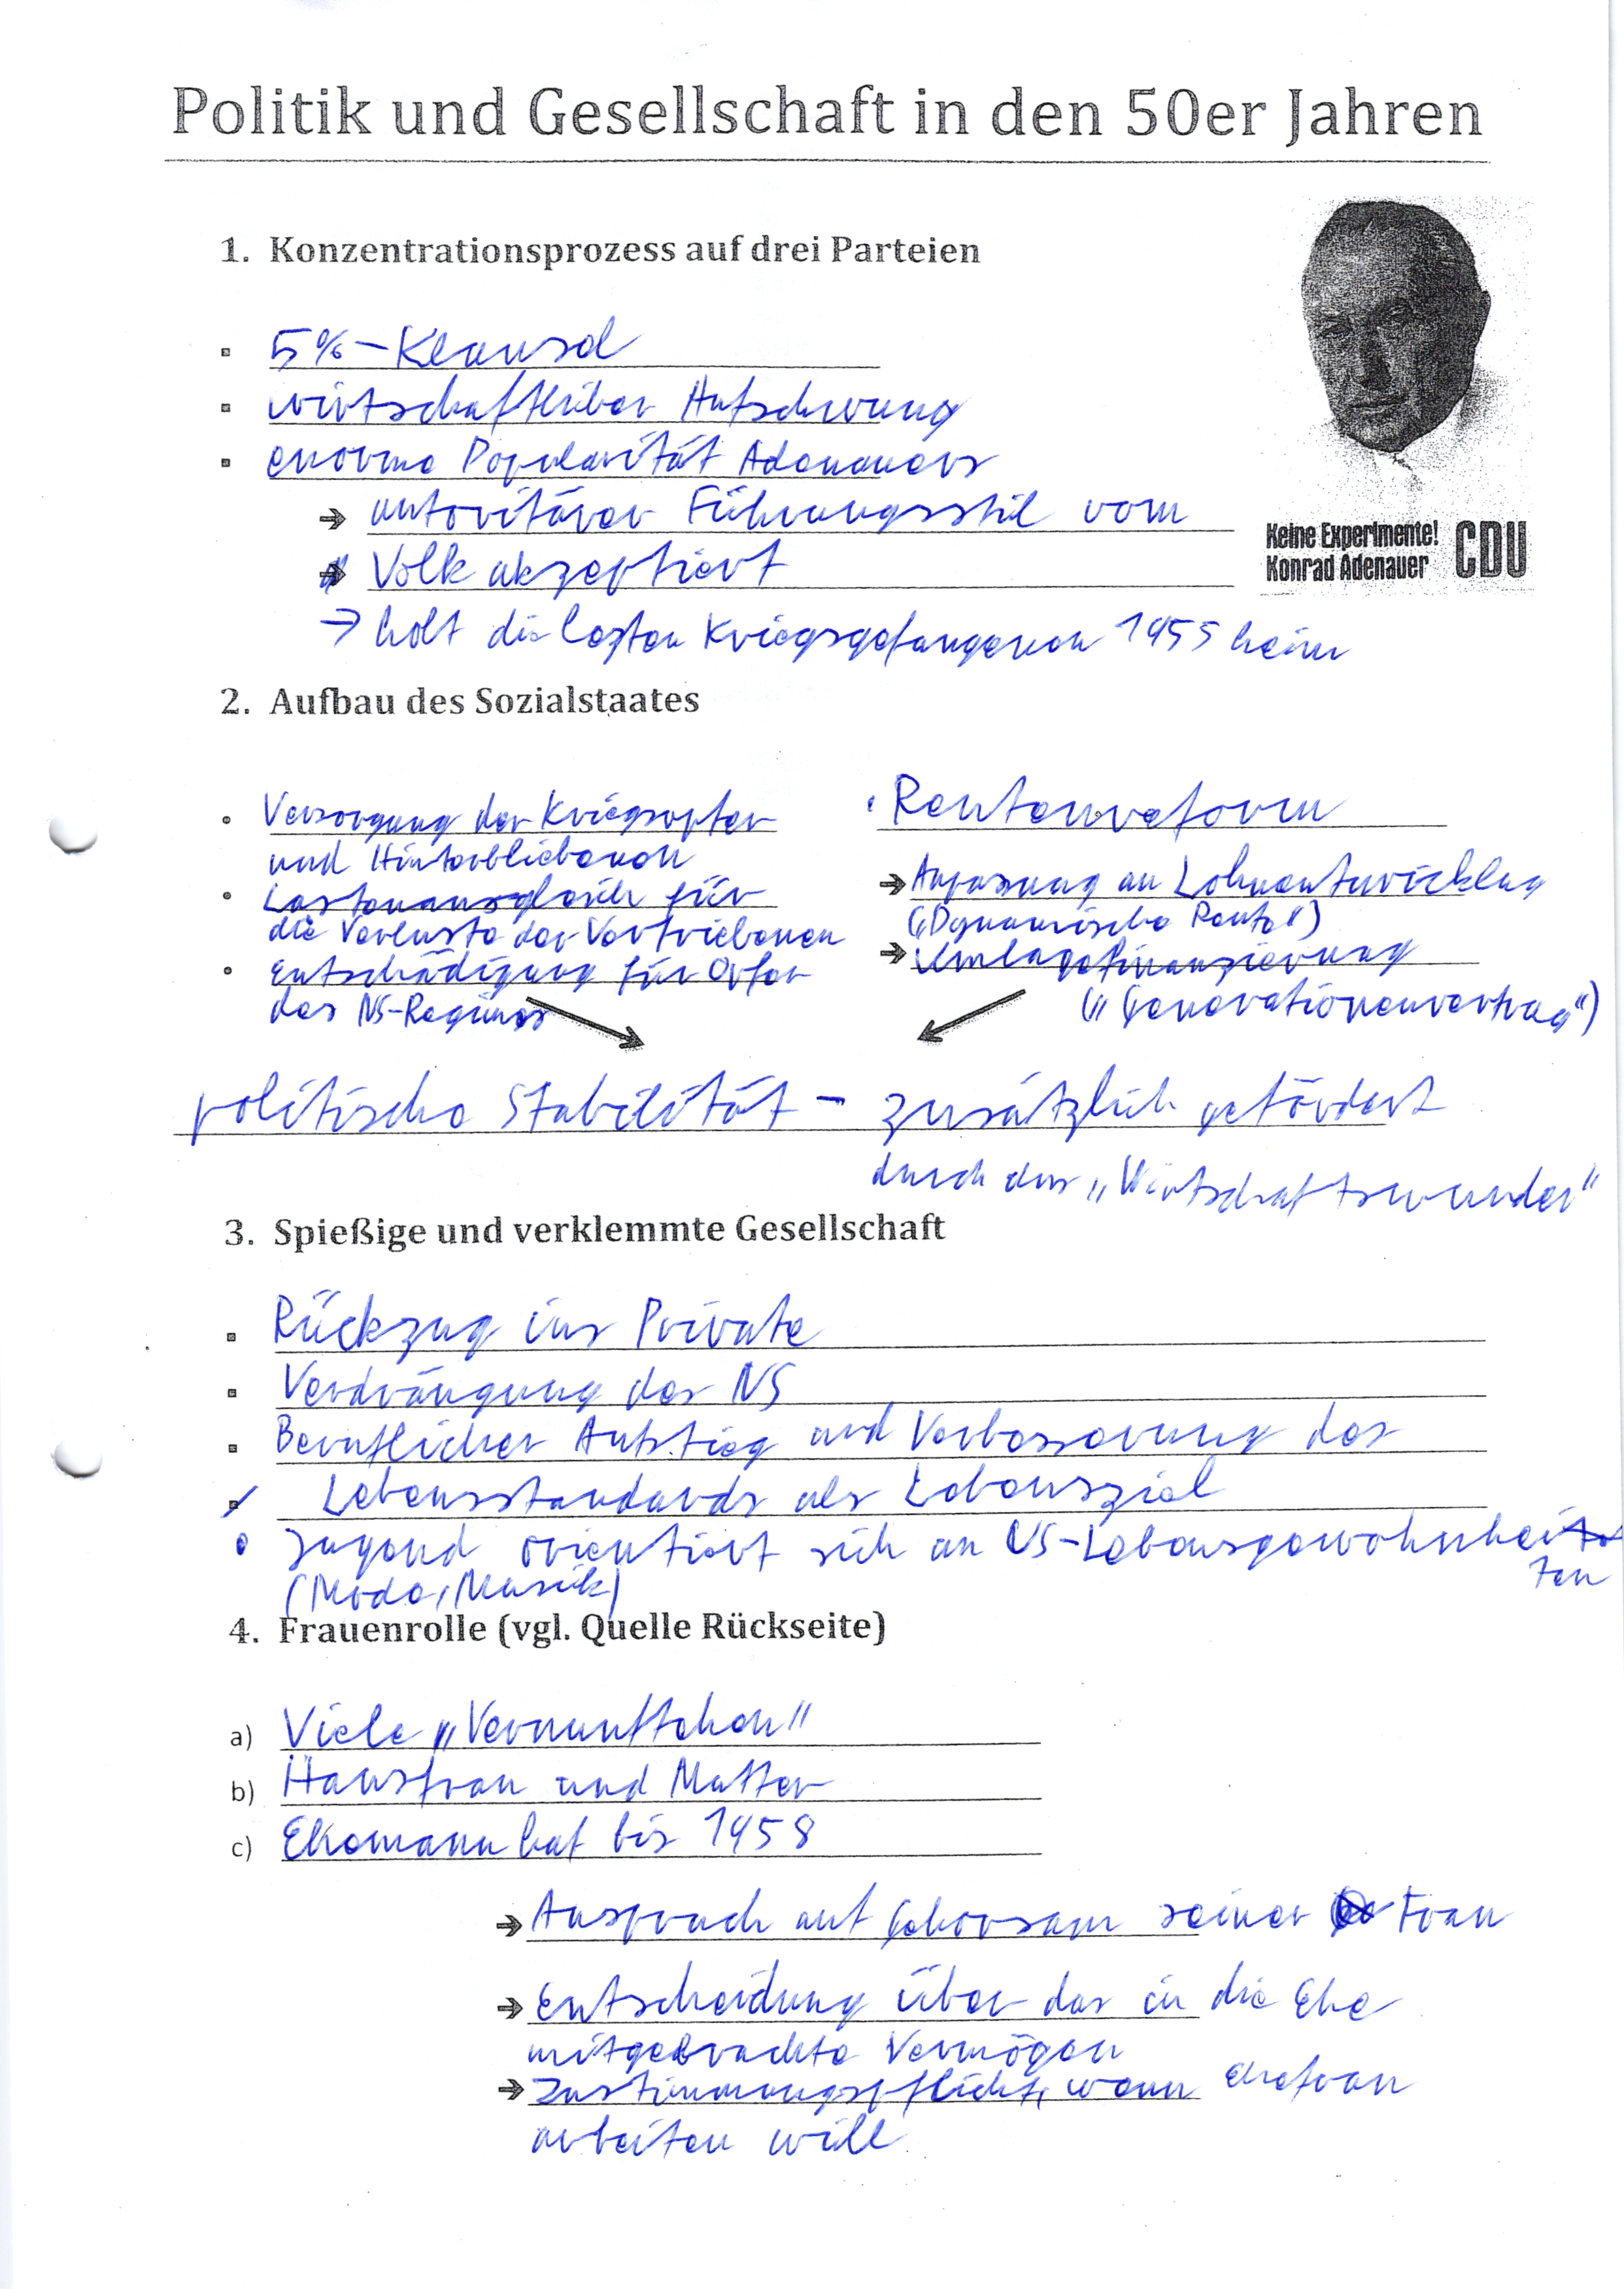 Politik und Gesellschaft in den 50er Jahren
1. Konzentrationsprozess auf drei Parteien
5%-Klausel
wirtschaftlicher Aufschwung
enorme Popularität Adenauers
→ autoritärer Führungsstil vom
→ Volk akzeptiert
→ holt die letzten Kriegsgefangenen 1955 heim
Keine Experimente!
Konrad Adenauer CDU
2. Aufbau des Sozialstaates
• Versorgung der Kriegsopfer
und Hinterbliebenen
• Lastenausgleich für
die Verluste der Vertriebenen
• Entschädigung für Opfer
des NS-Regimes
• Rentenreform
→ Anpassung an Lohnentwicklung
("Dynamische Rente")
→ Umlagefinanzierung
("Generationenvertrag")
politische Stabilität – zusätzlich gefördert
durch das „Wirtschaftswunder"
3. Spießige und verklemmte Gesellschaft
Rückzug ins Private
Verdrängung des NS
Beruflicher Aufstieg und Verbesserung des
Lebensstandards als Lebensziel
• Jugend orientiert sich an US-Lebensgewohnhei
ten
(Mode, Musik)
4. Frauenrolle (vgl. Quelle Rückseite)
a) Viele „Vernunftehen"
b) Hausfrau und Mutter
c) Ehemann hat bis 1958
→ Anspruch auf Gehorsam seiner Frau
→ Entscheidung über das in die Ehe
mitgebrachte Vermögen
→ Zustimmungspflicht, wenn Ehefrau
arbeiten will